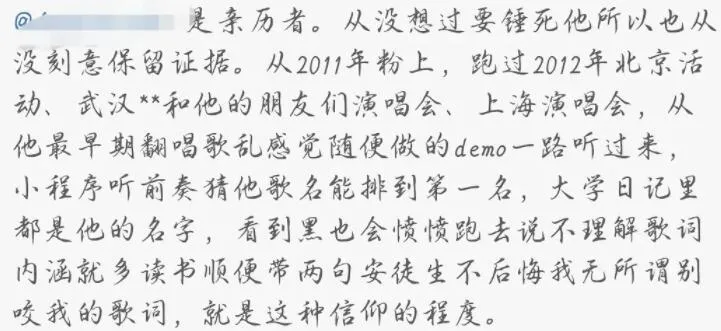 是亲历者。从没想过要锤死他所以也从
没刻意保留证据。从2011年粉上，跑过2012年北京活
动、武汉**和他的朋友们演唱会、上海演唱会，从
他最早期翻唱歌乱感觉随便做的demo一路听过来，
小程序听前奏猜他歌名能排到第一名，大学日记里
都是他的名字，看到黑也会愤愤跑去说不理解歌词
内涵就多读书顺便带两句安徒生不后悔我无所谓别
咬我的歌词，就是这种信仰的程度。